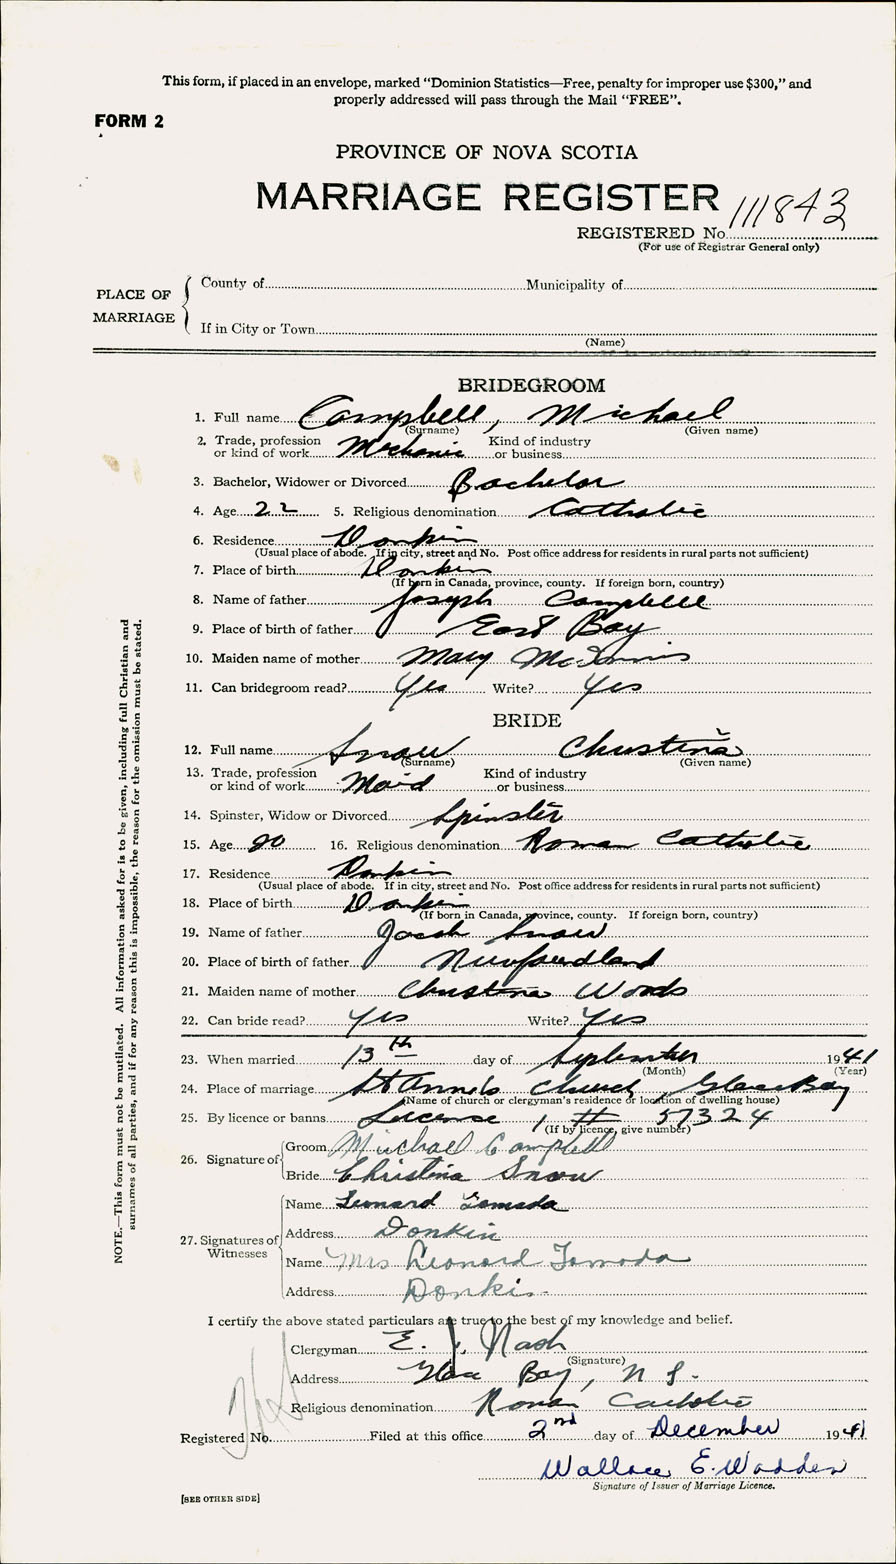 This form, if placed in an envelope, marked “Dominion Statistics—Free, penalty for improper use $300,” and
properly addressed will pass through the Mail “FREE”.
FORM 2
PROVINCE OF NOVA SCOTIA
MARRIAGE REGISTER
REGISTERED No. 111843
(For use of Registrar General only)
PLACE OF MARRIAGE
County of Municipality of
If in City or Town
(Name)
BRIDEGROOM
1. Full name Campbell, Michael
(Surname) (Given name)
2. Trade, profession or kind of work Mechanic Kind of industry or business
3. Bachelor, Widower or Divorced Bachelor
4. Age 22 5. Religious denomination Catholic
6. Residence Donkin
(Usual place of abode. If in city, street and No. Post office address for residents in rural parts not sufficient)
7. Place of birth Donkin
(If born in Canada, province, county. If foreign born, country)
8. Name of father Joseph Campbell
9. Place of birth of father East Bay
10. Maiden name of mother Mary
11. Can bridegroom read? Yes Write? Yes
BRIDE
12. Full name Snow Christina
(Surname) (Given name)
13. Trade, profession or kind of work Maid Kind of industry or business
14. Spinster, Widow or Divorced Spinster
15. Age 20 16. Religious denomination Roman Catholic
17. Residence Donkin
(Usual place of abode. If in city, street and No. Post office address for residents in rural parts not sufficient)
18. Place of birth Donkin
(If born in Canada, province, county. If foreign born, country)
19. Name of father Jacob Snow
20. Place of birth of father Newfoundland
21. Maiden name of mother Christena Woods
22. Can bride read? Yes Write? Yes
23. When married 13th day of September 1941
(Month) (Year)
24. Place of marriage St Anne's Church, Glace Bay
(Name of church or clergyman's residence or location of dwelling house)
25. By licence or banns License, # 57324
(If by licence, give number)
26. Signature of
Groom Michael Campbell
Bride Christina Snow
27. Signatures of Witnesses
Name Leonard
Address Donkin
Name Mrs Leonard
Address Donkin
I certify the above stated particulars are true to the best of my knowledge and belief.
Clergyman E. J. Nash
(Signature)
Address Glace Bay, N S.
Religious denomination Roman Catholic
Registered No. Filed at this office 2nd day of December 1941
Wallace E. Wadden
Signature of Issuer of Marriage Licence.
[SEE OTHER SIDE]
NOTE.—This form must not be mutilated. All information asked for is to be given, including full Christian and
surnames of all parties, and if for any reason this is impossible, the reason for the omission must be stated.